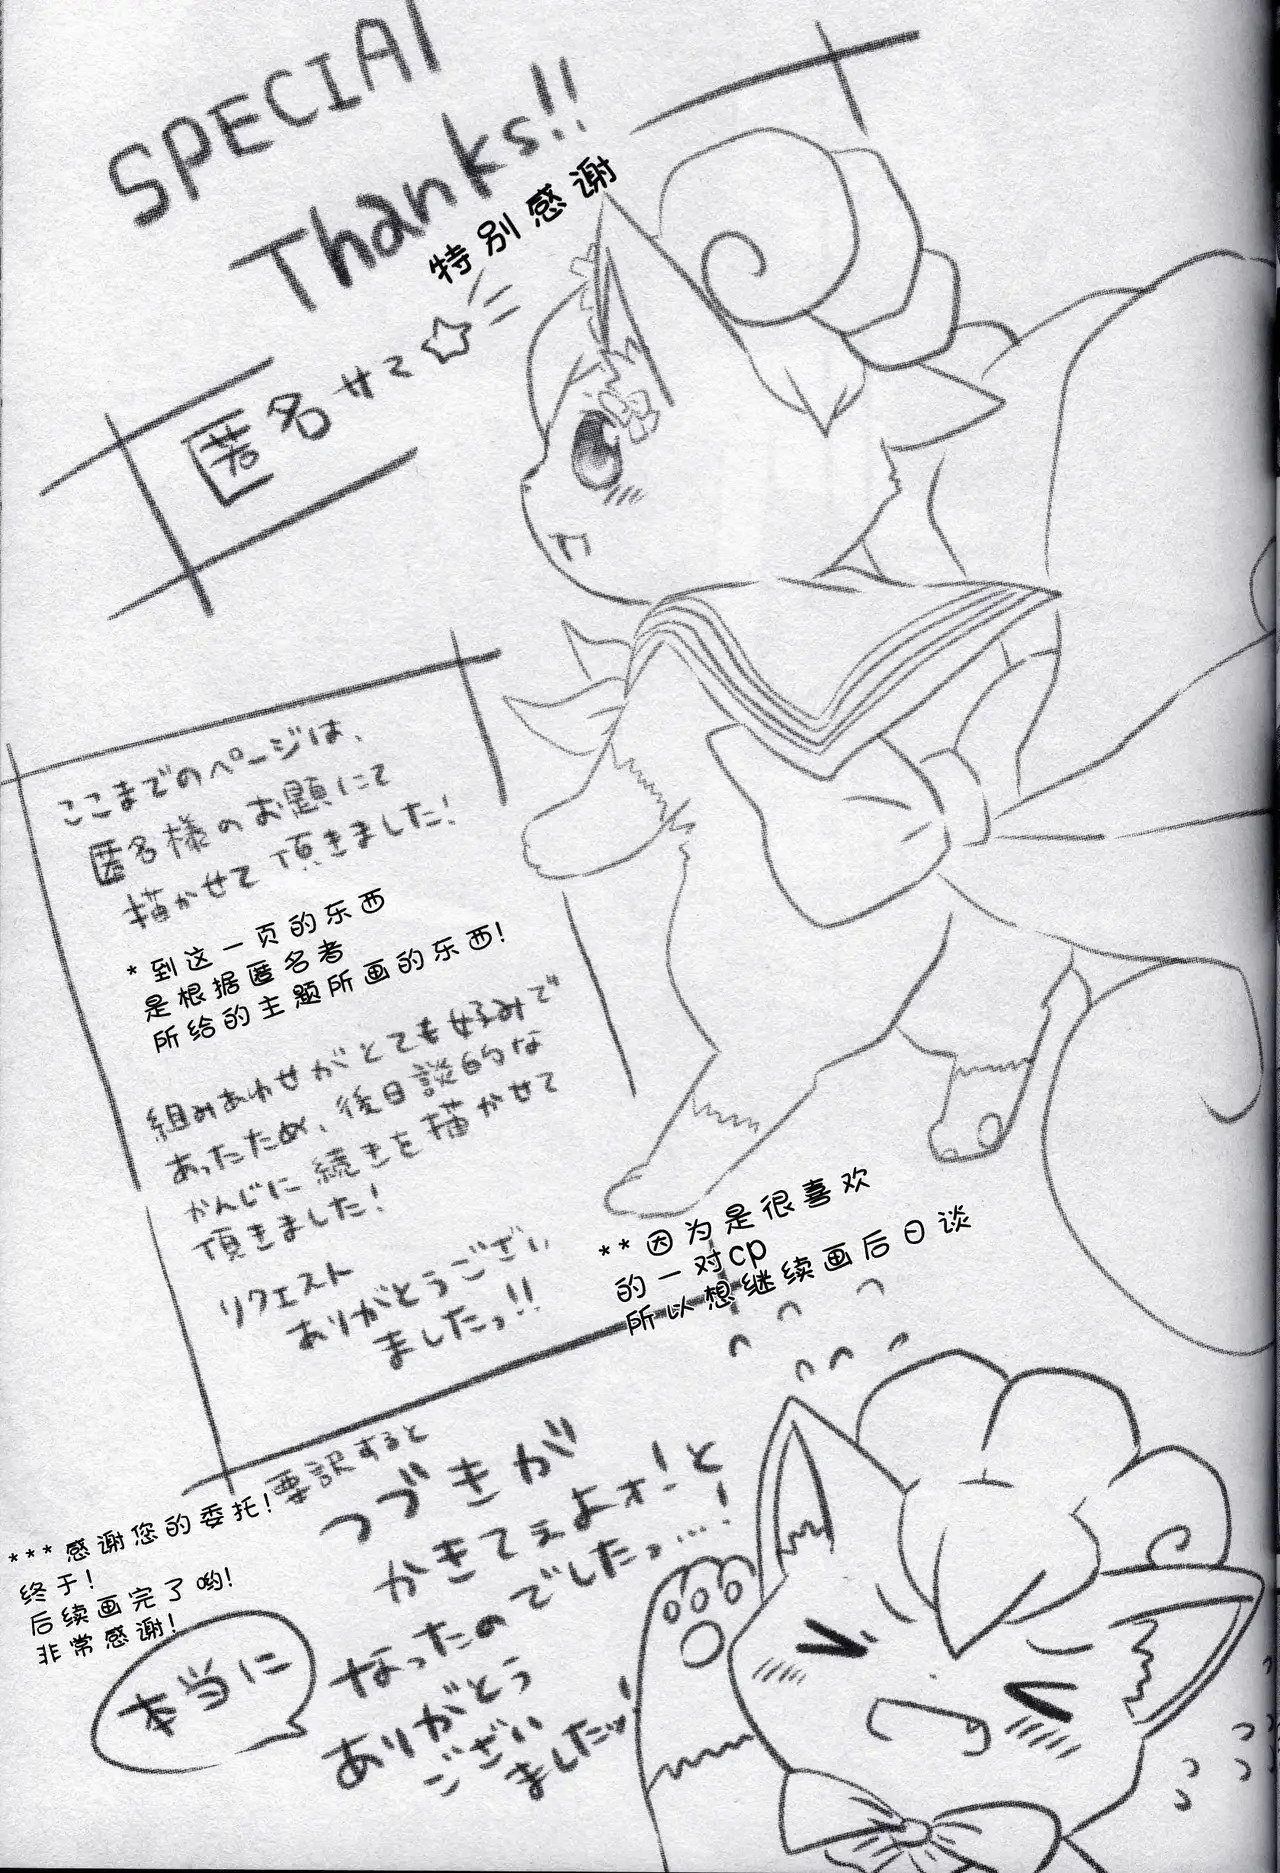 SPECIAl
Thanks!!
特别感谢
匿名サマ☆
ここまでのページは、
匿名様のお題にて
描かせて頂きました!
*到这一页的东西
是根据匿名者
所给的主题所画的东西!
組みあわせがとても好みで
あったため、後日談的な
かんじに続きを描かせて
頂きました!
リクエスト
ありがとうござい
ましたっ!!
**因为是很喜欢
的一对cp
所以想继续画后日谈
要訳すると
つづきが
かきてぇよォ!と
なったのでしたっ…!
***感谢您的委托!
终于!
后续画完了哟!
非常感谢!
本当に
ありがとう
ござい
ましたッ!